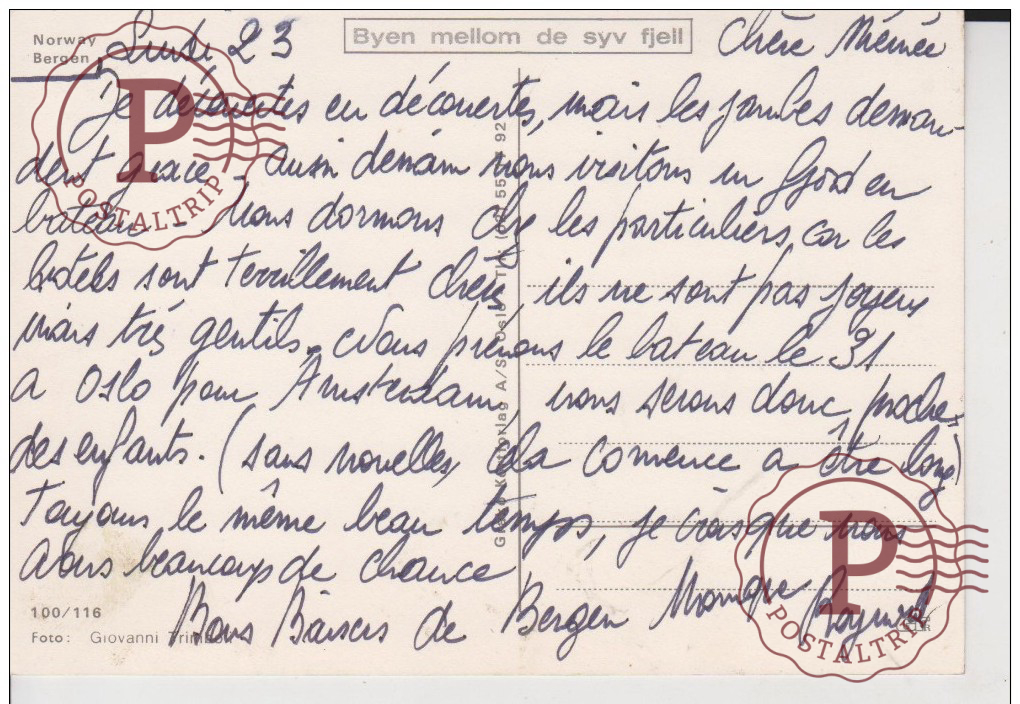 Norway
Bergen
Byen mellom de syv fjell
Lundi 23
Chère Mémée
Je découvertes en découvertes, mais les jambes deman-
dent grace, aussi demain nous visitons un fjord en
bateau. Nous dormons chez les particuliers, car les
hotels sont terriblement chers, ils ne sont pas joyeux
mais très gentils. Nous prenons le bateau le 31
a Oslo pour Amsterdam, nous serons donc proche
des enfants. (sans nouvelles, cela comence a être long)
Toujours le même beau temps, je crois que nous
avons beaucoup de chance
Bons Baisers de Bergen Monique
100/116
Foto: Giovanni
POSTALTRIP
POSTALTRIP